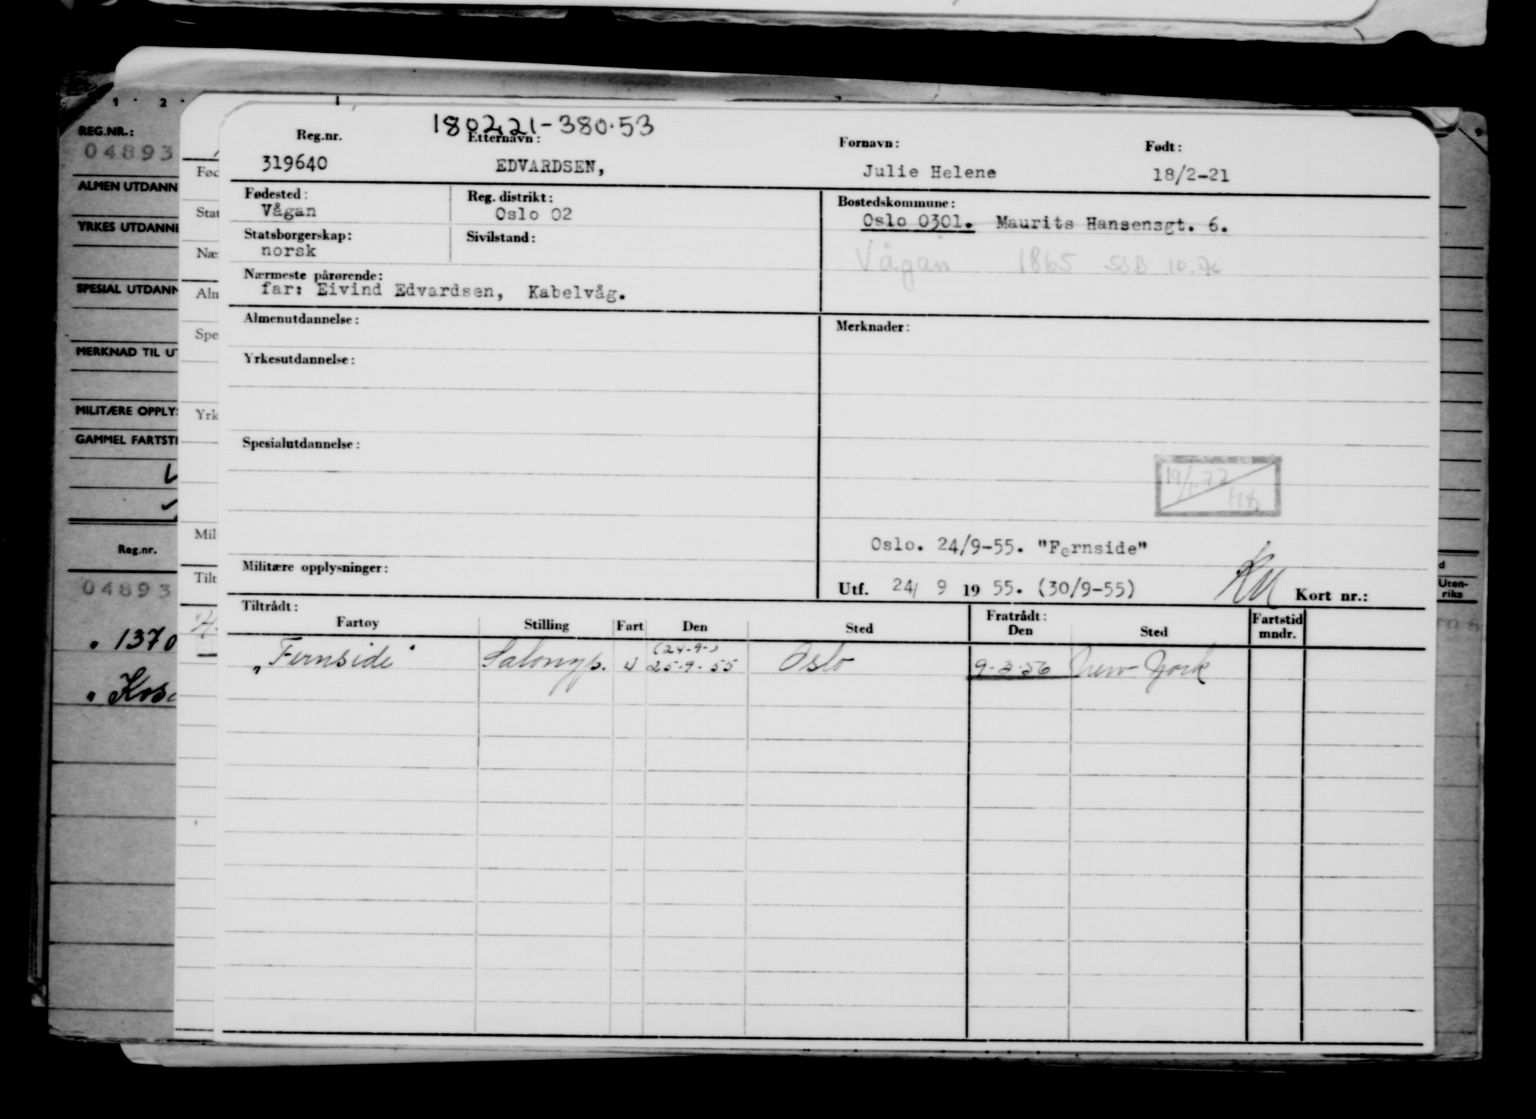 180221-380.53
Reg.nr. Etternavn: Fornavn: Født:
319640 EDVARDSEN, Julie Helene 18/2-21
Fødested: Reg. distrikt: Bostedskommune:
Vågan Oslo 02 Oslo 0301. Maurits Hansensgt. 6.
Statsborgerskap: Sivilstand:
norsk Vågan 1865 SSB 10.76
Nærmeste pårørende:
far: Eivind Edvardsen, Kabelvåg.
Almenutdannelse: Merknader:
Yrkesutdannelse:
Spesialutdannelse:
Oslo. 24/9-55. "Fernside"
Militære opplysninger: Utf. 24/ 9 19 55. (30/9-55) Kort nr.:
Tiltrådt: Fratrådt:
Fartøy Stilling Fart Den Sted Den Sted Fartstid mndr.
(24-9-)
"Fernside" Salongp. U 25-9-55 Oslo 9-3-56 New York
REG.NR.:
04893
ALMEN UTDANN
YRKES UTDANNE
SPESIAL UTDANN
MERKNAD TIL U
MILITÆRE OPPLY
GAMMEL FARTST
Reg.nr.
04893
1370
Fød
Stat
Næ
Aln
Spe
Yrk
Mil
Tilt
Uten-
riks